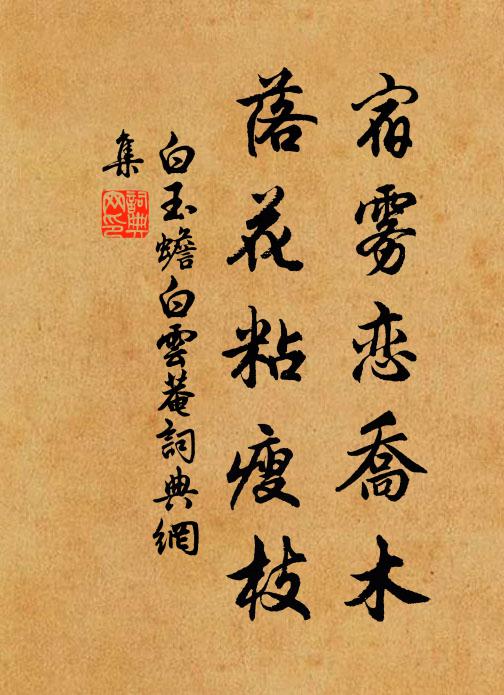 宿雾恋喬木
落花粘瘦枝
白玉蟾白雲菴詞典網
集
詞典網印